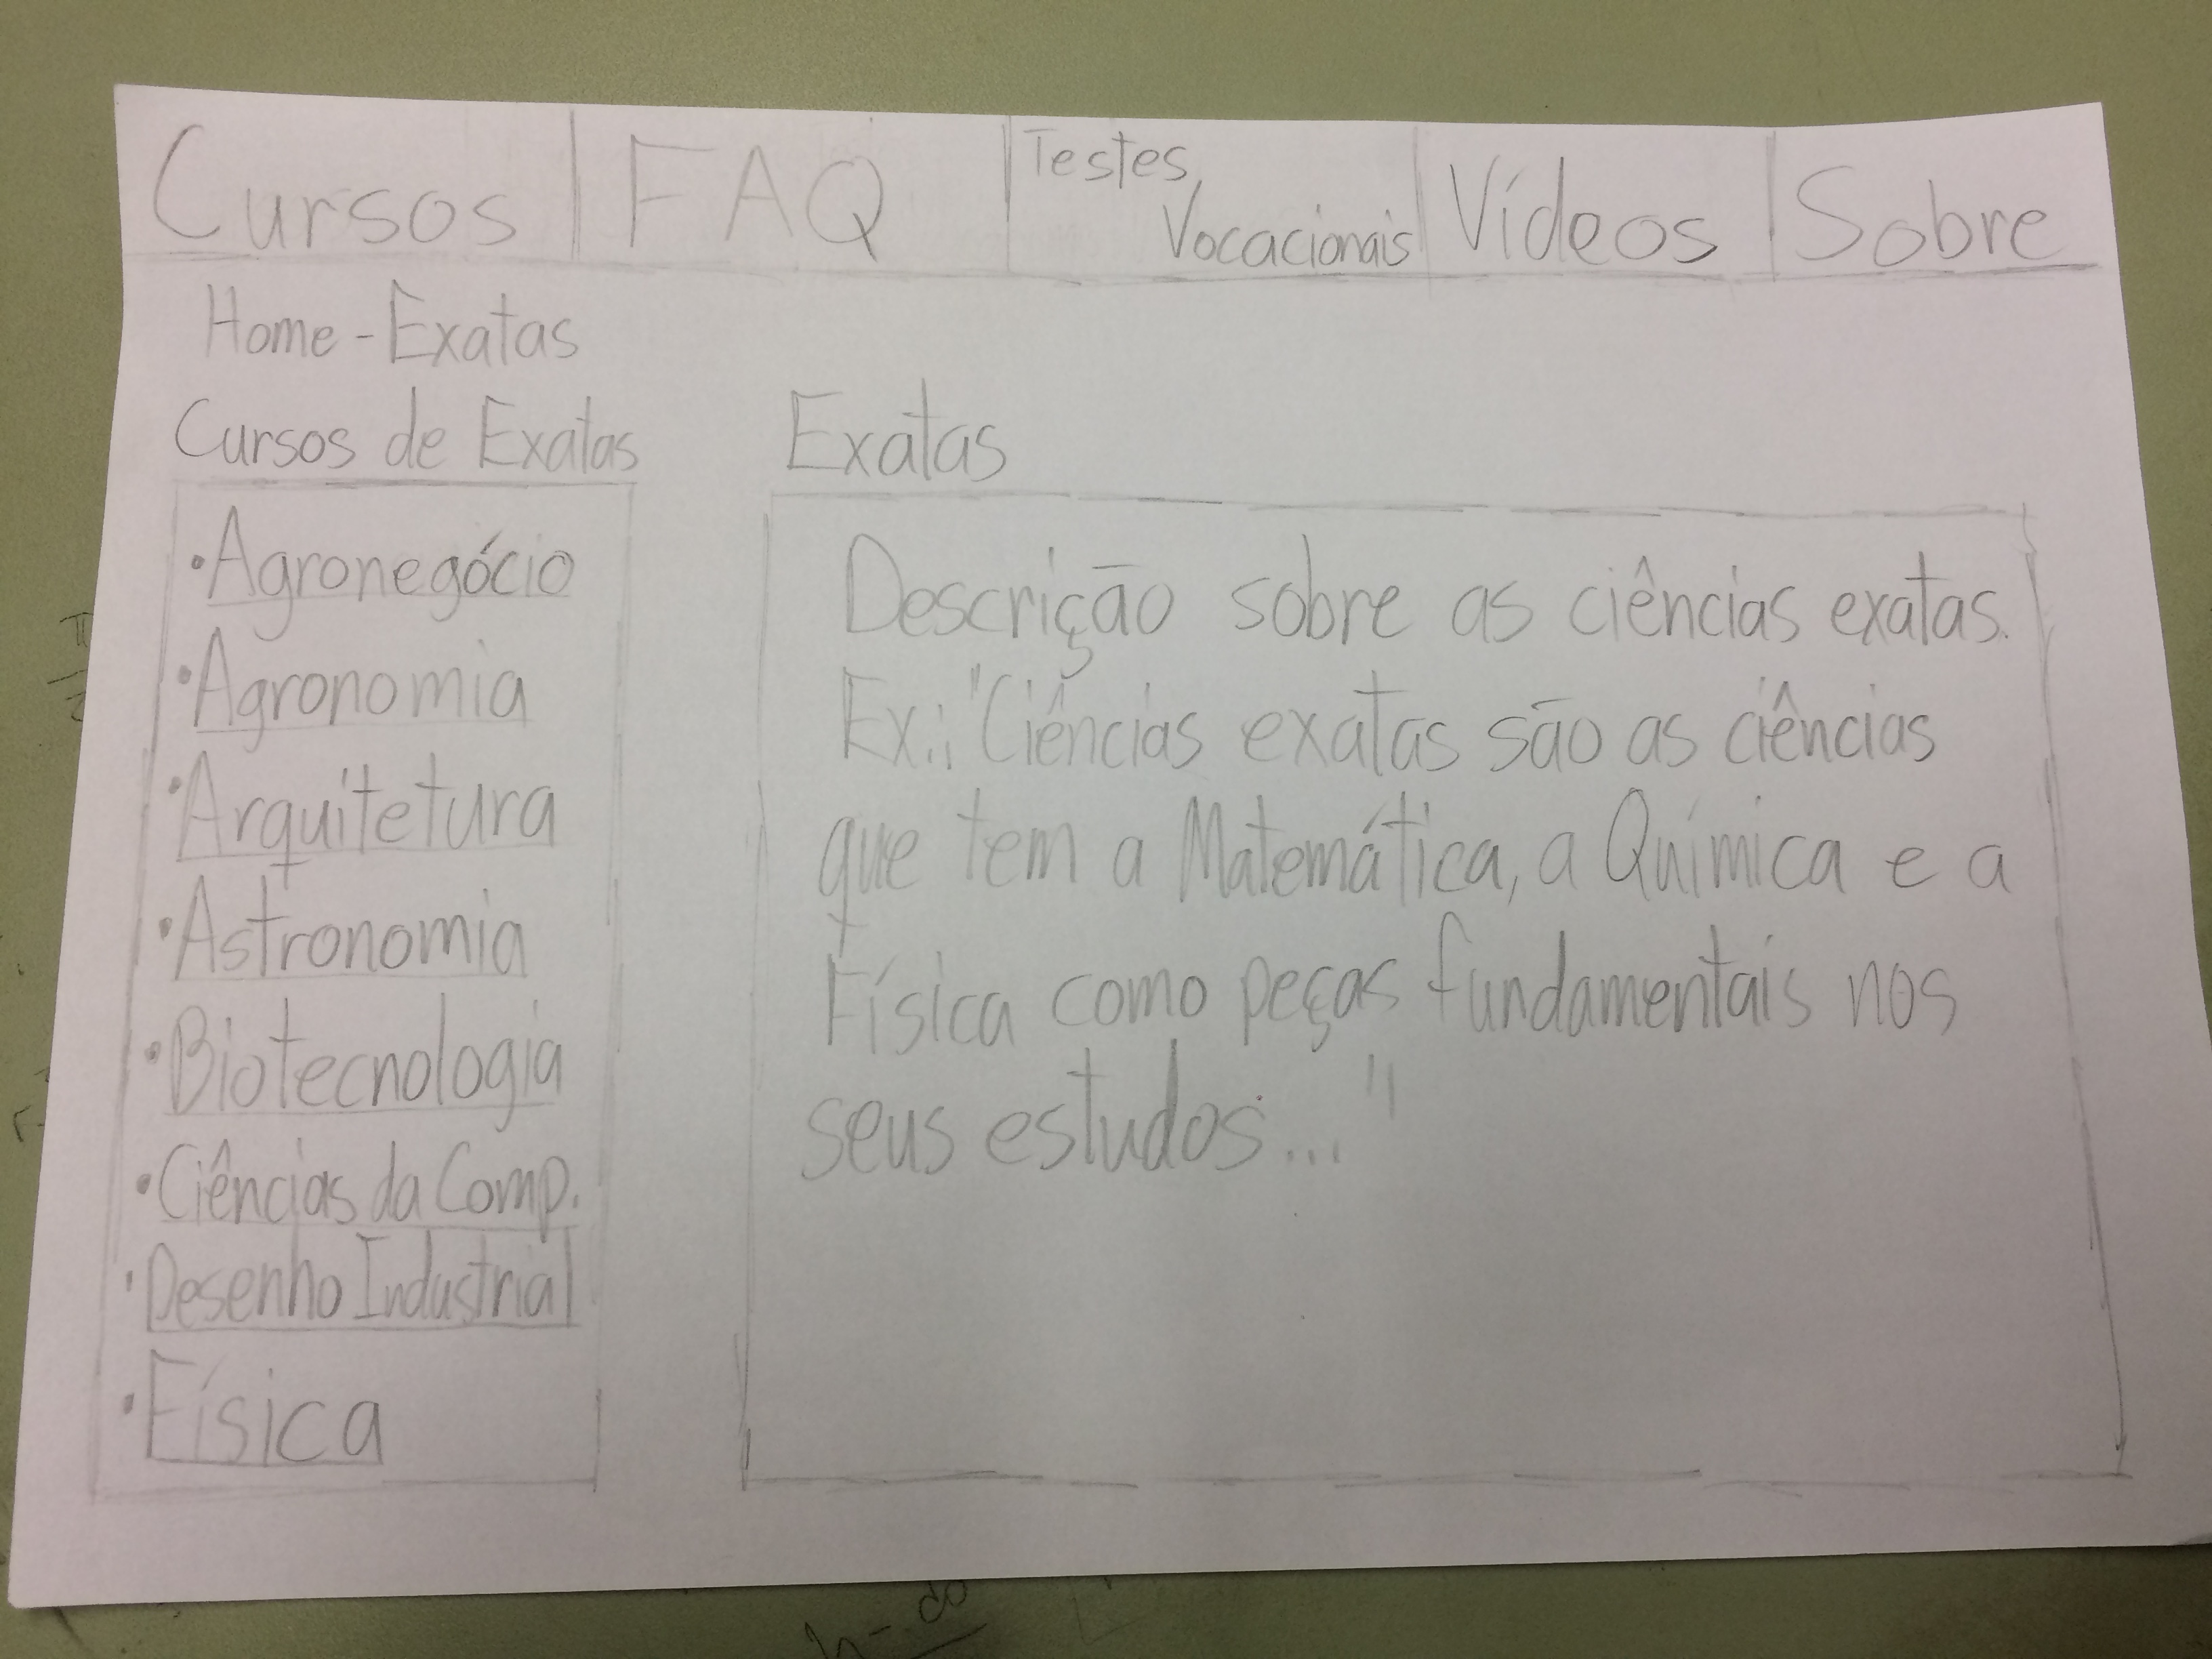 Cursos | FAQ | Testes Vocacionais | Vídeos | Sobre
Home - Exatas
Cursos de Exatas
• Agronegócio
• Agronomia
• Arquitetura
• Astronomia
• Biotecnologia
• Ciências da Comp.
• Desenho Industrial
• Física
Exatas
Descrição sobre as ciências exatas.
Ex.: "Ciências exatas são as ciências
que tem a Matemática, a Química e a
Física como peças fundamentais nos
seus estudos..."